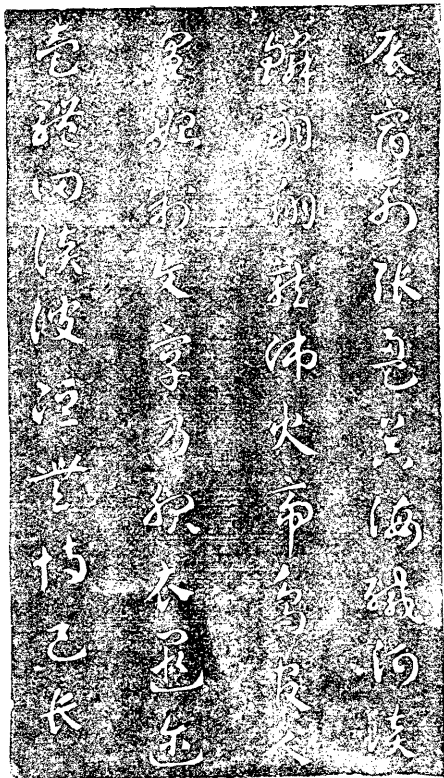 辰宿列張海鹹河淡
鱗羽翔龍師火帝鳥官人
皇始制文字乃服衣遐邇
壹體罔談彼短靡恃己長